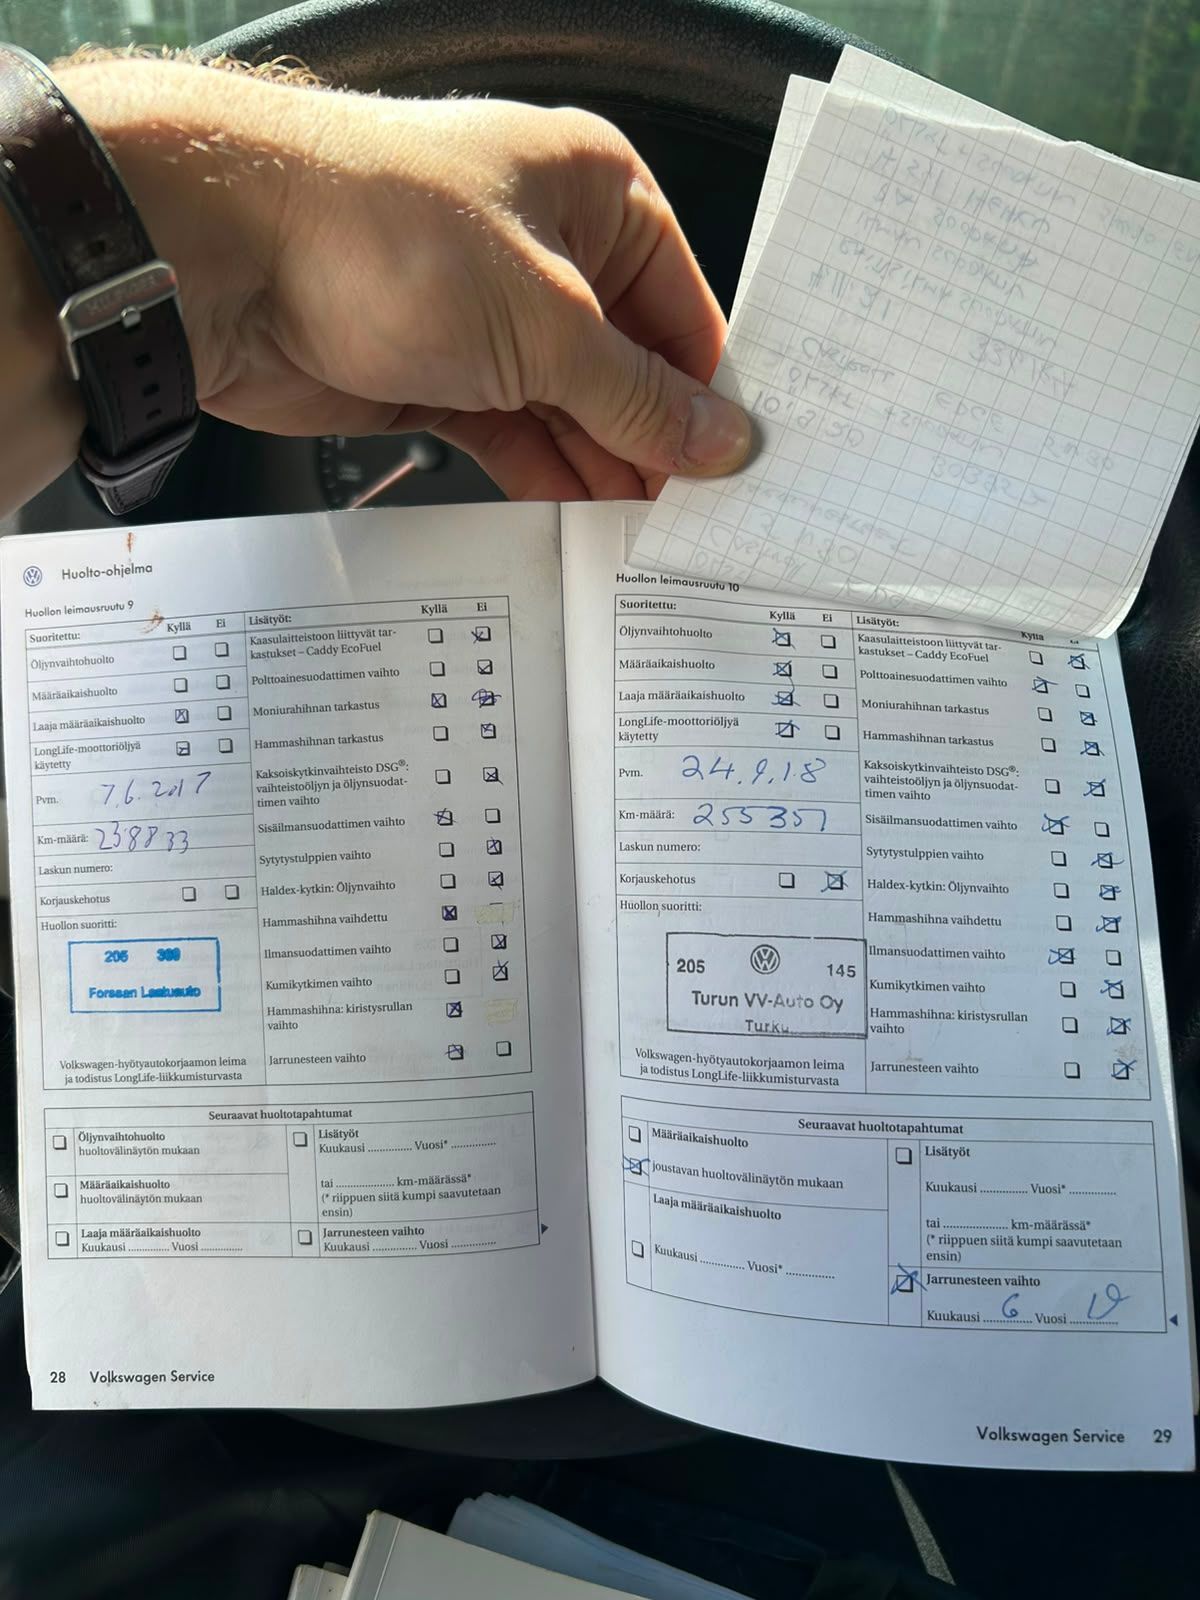 Huolto-ohjelma
Huollon leimausruutu 9
Suoritettu: Kyllä Ei
Öljynvaihtohuolto
Määräaikaishuolto
Laaja määräaikaishuolto
LongLife-moottoriöljyä
käytetty
Pvm. 7.6.2017
Km-määrä: 238833
Laskun numero:
Korjauskehotus
Huollon suoritti:
205
Forssan
Volkswagen-hyötyautokorjaamon leima
ja todistus LongLife-liikkumisturvasta
Lisätyöt: Kyllä Ei
Kaasulaitteistoon liittyvät tar-
kastukset – Caddy EcoFuel
Polttoainesuodattimen vaihto
Moniurahihnan tarkastus
Hammashihnan tarkastus
Kaksoiskytkinvaihteisto DSG®:
vaihteistoöljyn ja öljynsuodat-
timen vaihto
Sisäilmansuodattimen vaihto
Sytytystulppien vaihto
Haldex-kytkin: Öljynvaihto
Hammashihna vaihdettu
Ilmansuodattimen vaihto
Kumikytkimen vaihto
Hammashihna: kiristysrullan
vaihto
Jarrunesteen vaihto
Seuraavat huoltotapahtumat
Öljynvaihtohuolto
huoltovälinäytön mukaan
Määräaikaishuolto
huoltovälinäytön mukaan
Laaja määräaikaishuolto
Kuukausi .............. Vuosi ..............
Lisätyöt
Kuukausi .............. Vuosi* ..............
tai .................... km-määrässä*
(* riippuen siitä kumpi saavutetaan
ensin)
Jarrunesteen vaihto
Kuukausi .............. Vuosi ..............
28 Volkswagen Service
Huollon leimausruutu 10
Suoritettu: Kyllä Ei
Öljynvaihtohuolto
Määräaikaishuolto
Laaja määräaikaishuolto
LongLife-moottoriöljyä
käytetty
Pvm. 24.9.18
Km-määrä: 255357
Laskun numero:
Korjauskehotus
Huollon suoritti:
205 145
Turun VV-Auto Oy
Turku
Volkswagen-hyötyautokorjaamon leima
ja todistus LongLife-liikkumisturvasta
Lisätyöt: Kyllä Ei
Kaasulaitteistoon liittyvät tar-
kastukset – Caddy EcoFuel
Polttoainesuodattimen vaihto
Moniurahihnan tarkastus
Hammashihnan tarkastus
Kaksoiskytkinvaihteisto DSG®:
vaihteistoöljyn ja öljynsuodat-
timen vaihto
Sisäilmansuodattimen vaihto
Sytytystulppien vaihto
Haldex-kytkin: Öljynvaihto
Hammashihna vaihdettu
Ilmansuodattimen vaihto
Kumikytkimen vaihto
Hammashihna: kiristysrullan
vaihto
Jarrunesteen vaihto
Seuraavat huoltotapahtumat
Määräaikaishuolto
joustavan huoltovälinäytön mukaan
Laaja määräaikaishuolto
Kuukausi .............. Vuosi* ..............
Lisätyöt
Kuukausi .............. Vuosi* ..............
tai .................... km-määrässä*
(* riippuen siitä kumpi saavutetaan
ensin)
Jarrunesteen vaihto
Kuukausi 6 Vuosi 19
Volkswagen Service 29